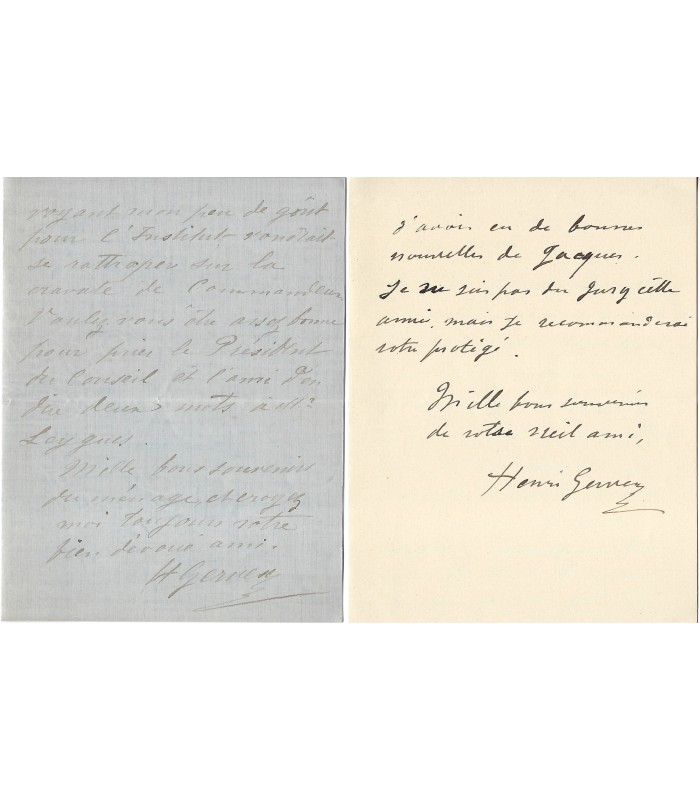 voyant mon peu de goût
pour l'Institut voudrait
se rattraper sur la
cravate de Commandeur
Voulez vous être assez bonne
pour prier le Président
du Conseil et l'ami d'en
dire deux mots à Mr
Leygues.
Mille bons souvenirs
du ménage, et croyez
moi toujours votre
bien dévoué ami.
H Gervex
d'avoir eu de bonnes
nouvelles de Jacques.
Je ne suis pas du Jury cette
année, mais je recommanderai
votre protégé.
Mille bons souvenirs
de votre vieil ami,
Henri Gervex